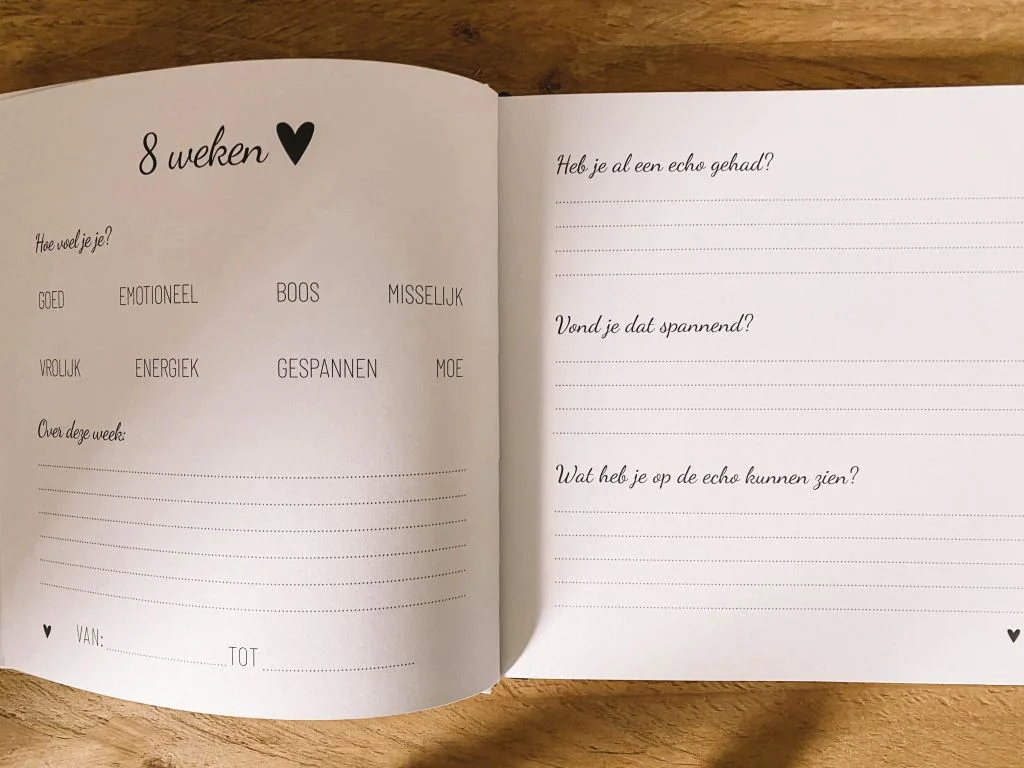 8 weken
Hoe voel je je?
GOED EMOTIONEEL BOOS MISSELIJK
VROLIJK ENERGIEK GESPANNEN MOE
Over deze week:
VAN: TOT
Heb je al een echo gehad?
Vond je dat spannend?
Wat heb je op de echo kunnen zien?